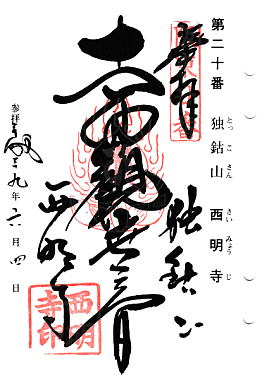 第二十番 独鈷山 西明寺
とっこさん さいみょうじ
奉拝
独鈷山
十一面観世音
西明寺
参拝 平成 三九年 六月 四日
西明
寺印